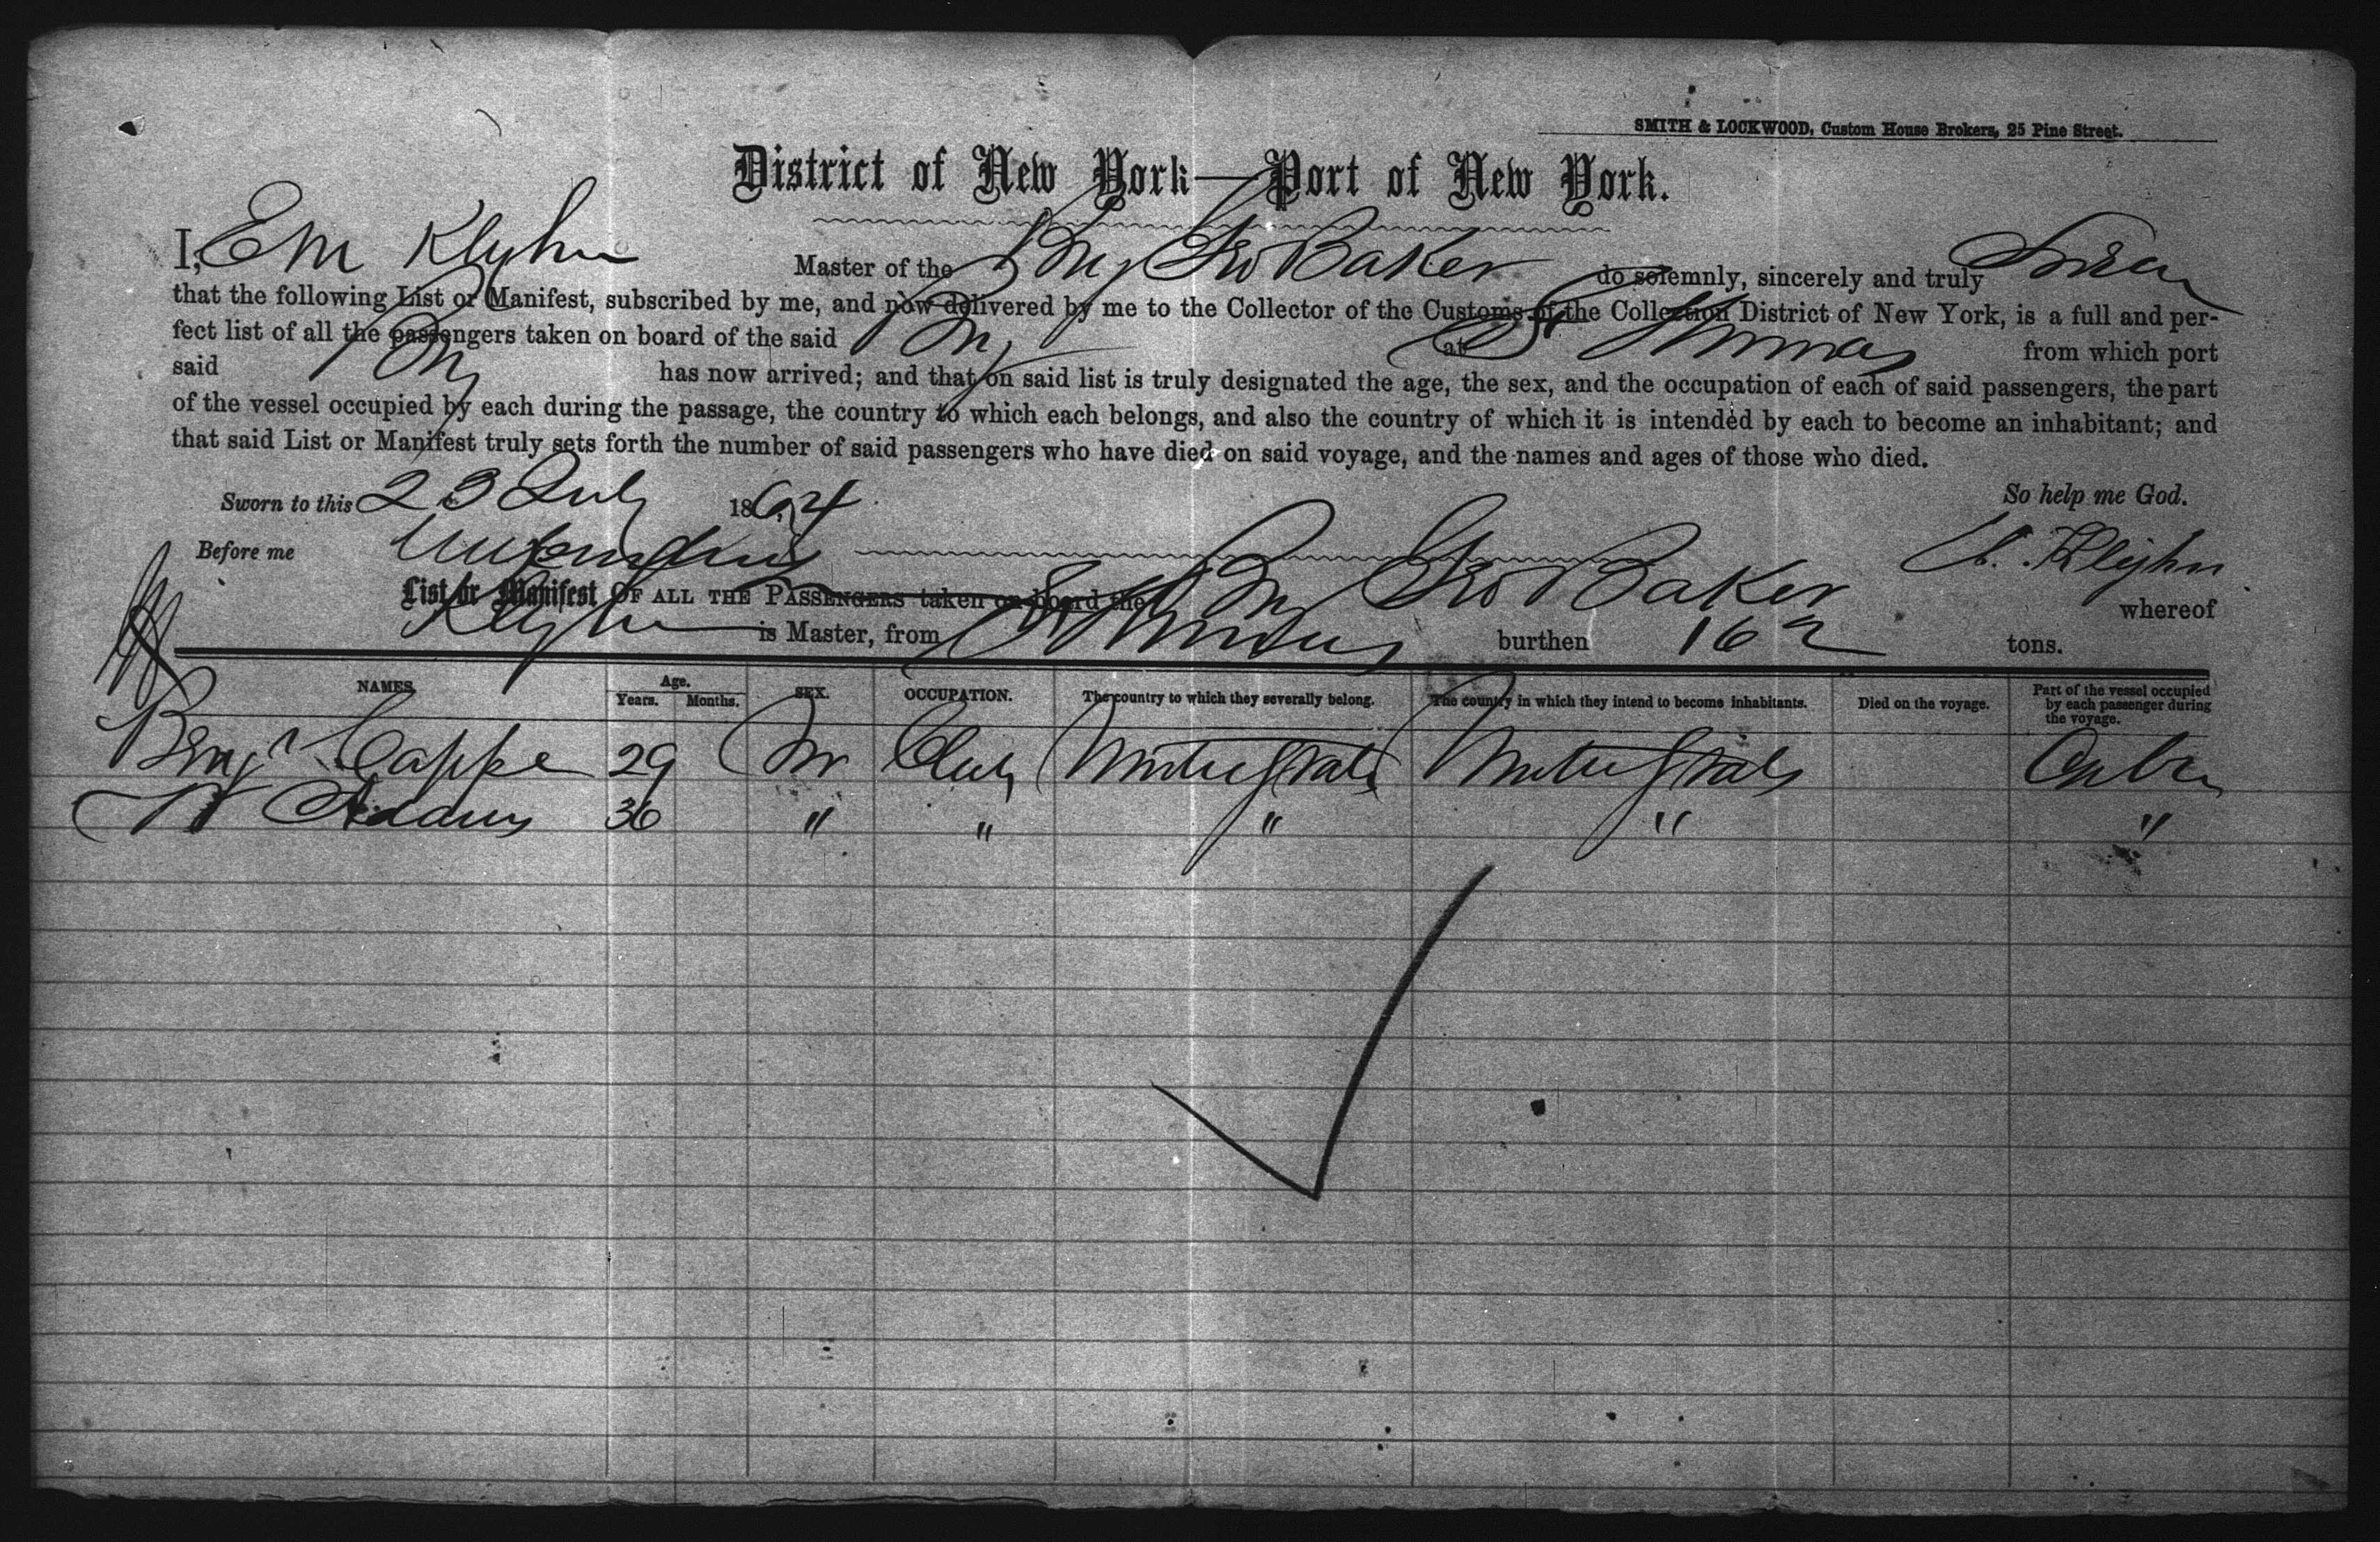 SMITH & LOCKWOOD, Custom House Brokers, 25 Pine Street.
District of New York—Port of New York.
I, E M Klyhn Master of the Brig Geo Baker do solemnly, sincerely and truly Swear
that the following List or Manifest, subscribed by me, and now delivered by me to the Collector of the Customs of the Collection District of New York, is a full and per-
fect list of all the passengers taken on board of the said Brig at St Thomas from which port
said Brig has now arrived; and that on said list is truly designated the age, the sex, and the occupation of each of said passengers, the part
of the vessel occupied by each during the passage, the country to which each belongs, and also the country of which it is intended by each to become an inhabitant; and
that said List or Manifest truly sets forth the number of said passengers who have died on said voyage, and the names and ages of those who died.
Sworn to this 23 July 1864 So help me God.
Before me Klyhn
List or Manifest OF ALL THE PASSENGERS taken on board the Brig Geo Baker whereof
Klyhn is Master, from St Thomas burthen 162 tons.
NAMES. Age. Years. Months. SEX. OCCUPATION. The country to which they severally belong. The country in which they intend to become inhabitants. Died on the voyage. Part of the vessel occupied by each passenger during the voyage.
Benjn Cappe 29 M United States United States Cabin
W Adams 36 " " " " "